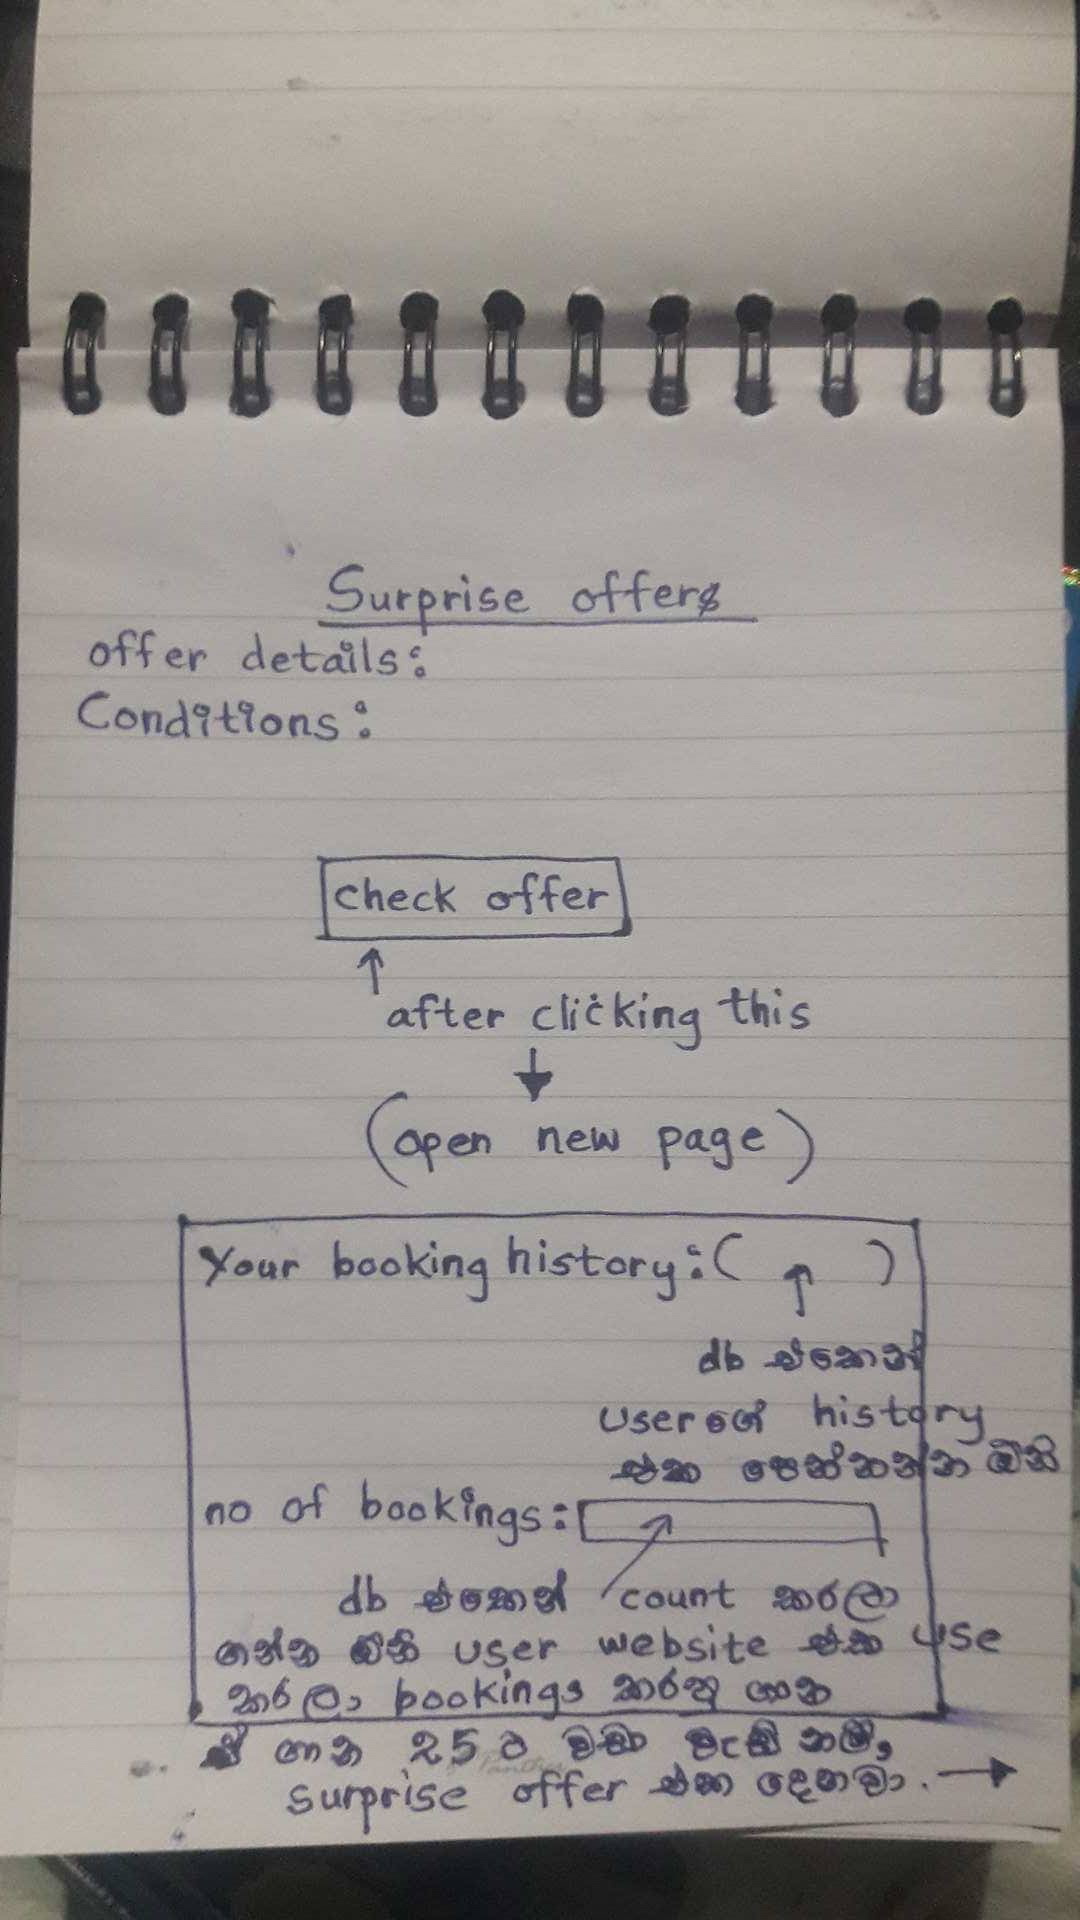 Surprise offers
offer details:
Conditions:
check offer
↑
after clicking this
↓
(open new page)
Your booking history:( ↑ )
db එකෙන්
userගේ history
එක පෙන්නන්න ඕනි
no of bookings:
db එකෙන් count කරලා
ගන්න ඕනි user website එක use
කරලා bookings කරපු ගාන
ඒ ගාන 25 ට වඩා වැඩි නම්,
surprise offer එක දෙනවා. →